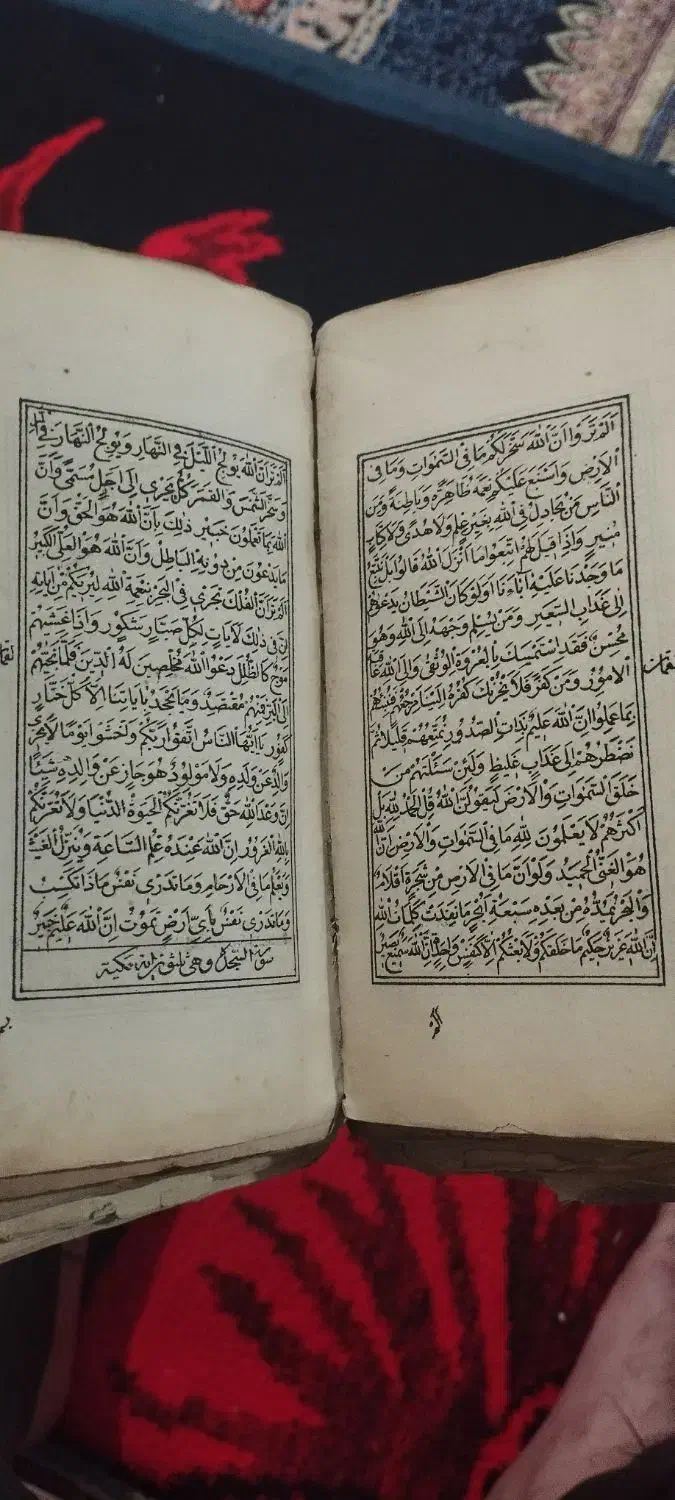 اَلَمْ تَرَوْا اَنَّ اللّٰهَ سَخَّرَ لَكُمْ مَا فِى السَّمٰوَاتِ وَمَا فِى
الْاَرْضِ وَاَسْبَغَ عَلَيْكُمْ نِعَمَهُ ظَاهِرَةً وَبَاطِنَةً وَمِنَ
النَّاسِ مَنْ يُجَادِلُ فِى اللّٰهِ بِغَيْرِ عِلْمٍ وَلَا هُدًى وَلَا كِتَابٍ
مُنِيرٍ وَاِذَا قِيلَ لَهُمُ اتَّبِعُوا مَا اَنْزَلَ اللّٰهُ قَالُوا بَلْ نَتَّبِعُ
مَا وَجَدْنَا عَلَيْهِ اٰبَاءَنَا اَوَلَوْ كَانَ الشَّيْطَانُ يَدْعُوهُمْ
اِلٰى عَذَابِ السَّعِيرِ وَمَنْ يُسْلِمْ وَجْهَهُ اِلَى اللّٰهِ وَهُوَ
مُحْسِنٌ فَقَدِ اسْتَمْسَكَ بِالْعُرْوَةِ الْوُثْقٰى وَاِلَى اللّٰهِ عَاقِبَةُ
الْاُمُورِ وَمَنْ كَفَرَ فَلَا يَحْزُنْكَ كُفْرُهُ اِلَيْنَا مَرْجِعُهُمْ فَنُنَبِّئُهُمْ
بِمَا عَمِلُوا اِنَّ اللّٰهَ عَلِيمٌ بِذَاتِ الصُّدُورِ نُمَتِّعُهُمْ قَلِيلًا ثُمَّ
نَضْطَرُّهُمْ اِلٰى عَذَابٍ غَلِيظٍ وَلَئِنْ سَئَلْتَهُمْ مَنْ
خَلَقَ السَّمٰوَاتِ وَالْاَرْضَ لَيَقُولُنَّ اللّٰهُ قُلِ الْحَمْدُ لِلّٰهِ بَلْ
اَكْثَرُهُمْ لَا يَعْلَمُونَ لِلّٰهِ مَا فِى السَّمٰوَاتِ وَالْاَرْضِ اِنَّ اللّٰهَ
هُوَ الْغَنِىُّ الْحَمِيدُ وَلَوْ اَنَّ مَا فِى الْاَرْضِ مِنْ شَجَرَةٍ اَقْلَامٌ
وَالْبَحْرُ يَمُدُّهُ مِنْ بَعْدِهِ سَبْعَةُ اَبْحُرٍ مَا نَفِدَتْ كَلِمَاتُ اللّٰهِ
اِنَّ اللّٰهَ عَزِيزٌ حَكِيمٌ مَا خَلْقُكُمْ وَلَا بَعْثُكُمْ اِلَّا كَنَفْسٍ وَاحِدَةٍ اِنَّ اللّٰهَ سَمِيعٌ بَصِيرٌ
اَلَمْ
لقمان
اَلَمْ تَرَ اَنَّ اللّٰهَ يُولِجُ الَّيْلَ فِى النَّهَارِ وَيُولِجُ النَّهَارَ فِى الَّيْلِ
وَسَخَّرَ الشَّمْسَ وَالْقَمَرَ كُلٌّ يَجْرِى اِلٰى اَجَلٍ مُسَمًّى وَاَنَّ
اللّٰهَ بِمَا تَعْمَلُونَ خَبِيرٌ ذٰلِكَ بِاَنَّ اللّٰهَ هُوَ الْحَقُّ وَاَنَّ
مَا يَدْعُونَ مِنْ دُونِهِ الْبَاطِلُ وَاَنَّ اللّٰهَ هُوَ الْعَلِىُّ الْكَبِيرُ
اَلَمْ تَرَ اَنَّ الْفُلْكَ تَجْرِى فِى الْبَحْرِ بِنِعْمَةِ اللّٰهِ لِيُرِيَكُمْ مِنْ اٰيَاتِهِ
اِنَّ فِى ذٰلِكَ لَاٰيَاتٍ لِكُلِّ صَبَّارٍ شَكُورٍ وَاِذَا غَشِيَهُمْ
مَوْجٌ كَالظُّلَلِ دَعَوُا اللّٰهَ مُخْلِصِينَ لَهُ الدِّينَ فَلَمَّا نَجّٰيهُمْ
اِلَى الْبَرِّ فَمِنْهُمْ مُقْتَصِدٌ وَمَا يَجْحَدُ بِاٰيَاتِنَا اِلَّا كُلُّ خَتَّارٍ
كَفُورٍ يَا اَيُّهَا النَّاسُ اتَّقُوا رَبَّكُمْ وَاخْشَوْا يَوْمًا لَا يَجْزِى
وَالِدٌ عَنْ وَلَدِهِ وَلَا مَوْلُودٌ هُوَ جَازٍ عَنْ وَالِدِهِ شَيْئًا
اِنَّ وَعْدَ اللّٰهِ حَقٌّ فَلَا تَغُرَّنَّكُمُ الْحَيٰوةُ الدُّنْيَا وَلَا يَغُرَّنَّكُمْ
بِاللّٰهِ الْغَرُورُ اِنَّ اللّٰهَ عِنْدَهُ عِلْمُ السَّاعَةِ وَيُنَزِّلُ الْغَيْثَ
وَيَعْلَمُ مَا فِى الْاَرْحَامِ وَمَا تَدْرِى نَفْسٌ مَاذَا تَكْسِبُ
وَمَا تَدْرِى نَفْسٌ بِاَىِّ اَرْضٍ تَمُوتُ اِنَّ اللّٰهَ عَلِيمٌ خَبِيرٌ
سورة السجدة وهى ثلثون اية مكية